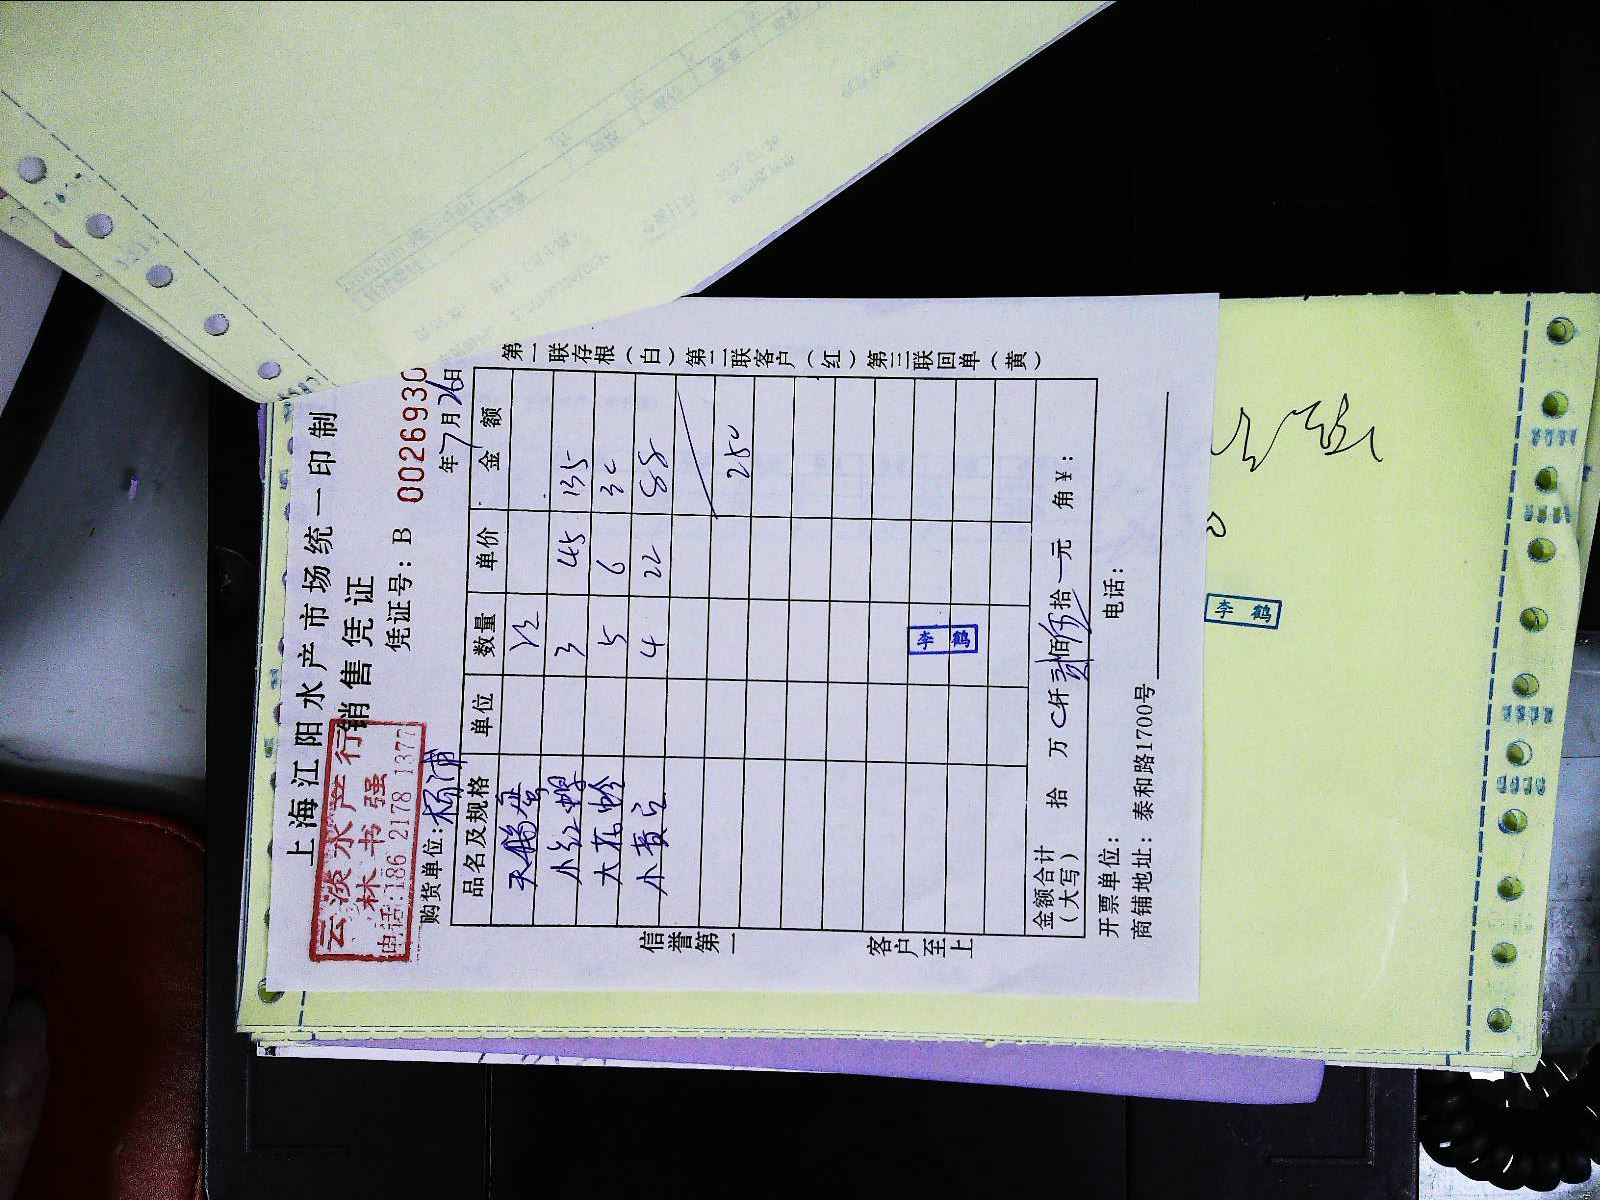 上海江阳水产市场统一印制
销售凭证
云淡水产行
林书强
电话:186 2178 1377
凭证号: B 0026930
购货单位: 杨浦
年 7月 26日
品名及规格 单位 数量 单价 金额
小红螺 3 45 135
大花蛤 5 6 30
小黄 4 22 88
250
李鹤
金额合计(大写) 拾 万 仟 贰佰 拾 元 角 ¥:
开票单位: 电话:
商铺地址: 泰和路1700号
第一联存根(白) 第二联客户(红) 第三联回单(黄)
信誉第一
客户至上
李鹤